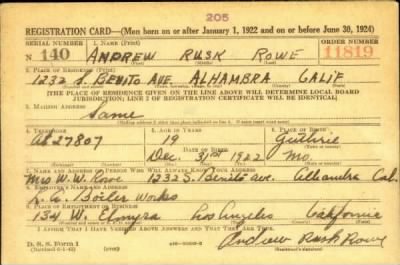 205
REGISTRATION CARD—(Men born on or after January 1, 1922 and on or before June 30, 1924)
SERIAL NUMBER 1. NAME (Print) ORDER NUMBER
N 140 ANDREW RUSK ROWE 11819
2. PLACE OF RESIDENCE (Print)
1232 S. BENITO AVE. ALHAMBRA CALIF
[THE PLACE OF RESIDENCE GIVEN ON THE LINE ABOVE WILL DETERMINE LOCAL BOARD
JURISDICTION; LINE 2 OF REGISTRATION CERTIFICATE WILL BE IDENTICAL]
3. MAILING ADDRESS
Same
[Mailing address if other than place indicated on line 2. If same insert word same]
4. TELEPHONE 5. AGE IN YEARS 6. PLACE OF BIRTH
At 27807 19 Guthrie
DATE OF BIRTH
Dec. 31st 1922 Mo.
7. NAME AND ADDRESS OF PERSON WHO WILL ALWAYS KNOW YOUR ADDRESS
Mrs W. W. Rowe 1232 S. Benito Ave. Alhambra Cal.
8. EMPLOYER'S NAME AND ADDRESS
L.A. Boiler Works
9. PLACE OF EMPLOYMENT OR BUSINESS
134 W. Elmyra Los Angeles California
I AFFIRM THAT I HAVE VERIFIED ABOVE ANSWERS AND THAT THEY ARE TRUE.
D. S. S. Form 1
(Revised 6-1-42)
Andrew Rusk Rowe